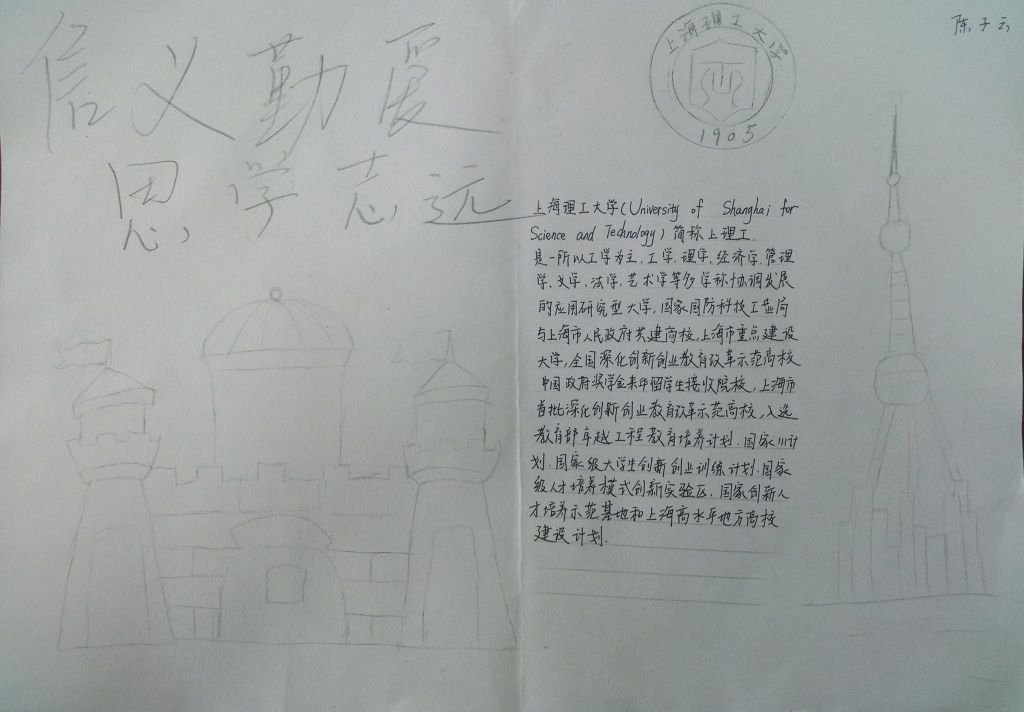 信义勤爱
思学志远
陈子云
上海理工大学
1905
上海理工大学(University of Shanghai for
Science and Technology)简称上理工.
是一所以工学为主,工学,理学,经济学,管理
学、文学、法学、艺术学等多学称协调发展
的应用研究型大学,国家国防科技工业局
与上海市人民政府共建高校,上海市重点建设
大学,全国深化创新创业教育改革示范高校
中国政府奖学金来华留学生接收院校,上海市
首批深化创新创业教育改革示范高校,入选
教育部卓越工程教育培养计划.国家111计
划.国家级大学生创新创业训练计划.国家
级人才培养模式创新实验区.国家创新人
才培养示范基地和上海高水平地方高校
建设计划.